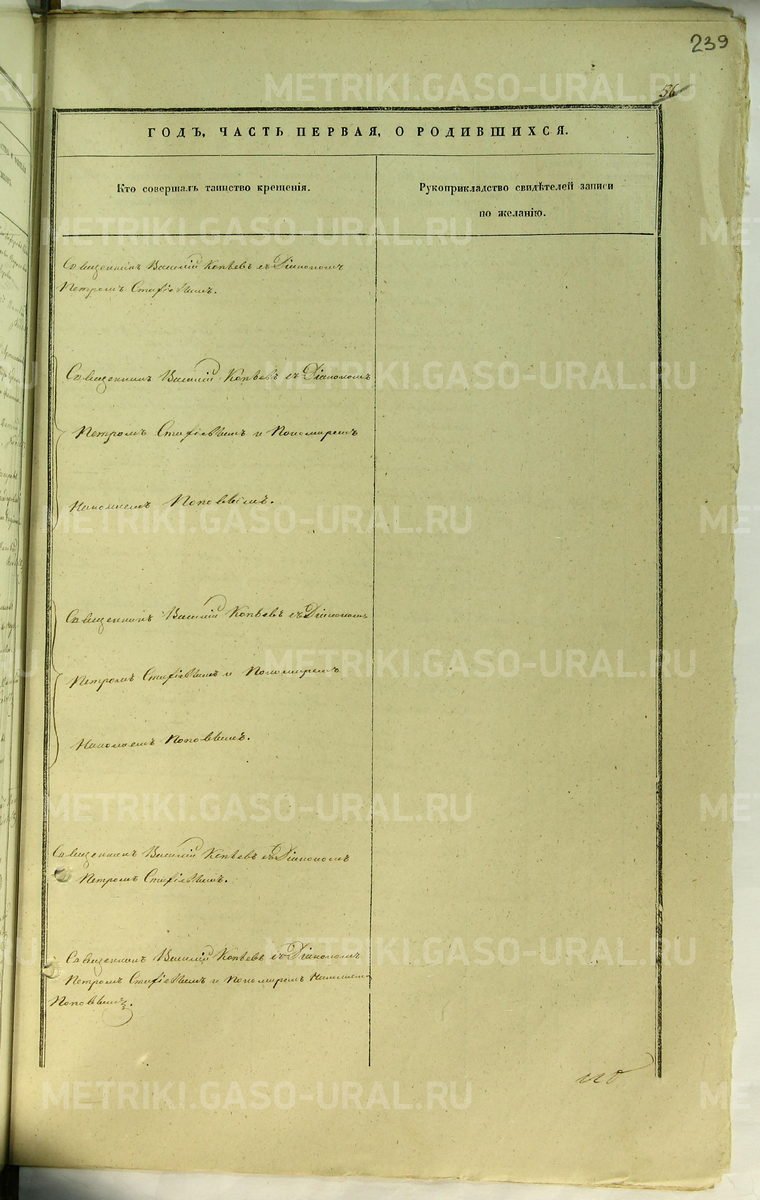 239
56
ГОДЪ, ЧАСТЬ ПЕРВАЯ, О РОДИВШИХСЯ.
Кто совершалъ таинство крещенія.
Рукоприкладство свидѣтелей записи
по желанію.
Священникъ Василій Копьевъ съ Діакономъ
Петромъ
Священникъ Василій Копьевъ съ Діакономъ
Петромъ и Пономаремъ
Николаемъ Поповымъ.
Священникъ Василій Копьевъ съ Діакономъ
Петромъ и Пономаремъ
Николаемъ Поповымъ.
Священникъ Василій Копьевъ съ Діакономъ
Петромъ
Священникъ Василій Копьевъ съ Діакономъ
Петромъ и Пономаремъ Николаемъ
Поповымъ.
METRIKI.GASO-URAL.RU